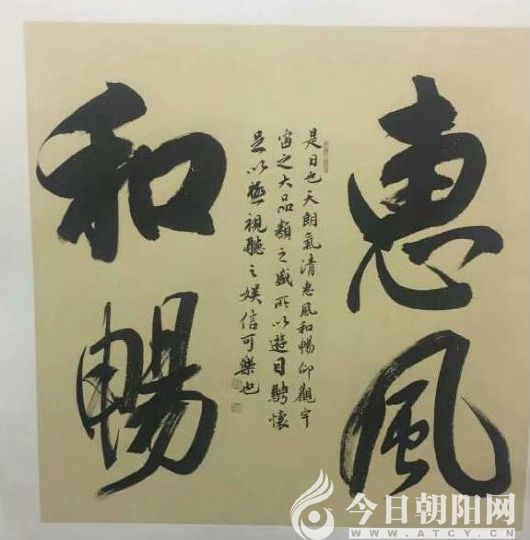 惠風
和暢
是日也天朗氣清惠風和暢仰觀宇
宙之大品類之盛所以遊目騁懷
足以極視聽之娛信可樂也
今日朝阳网
WWW.ATCY.CN